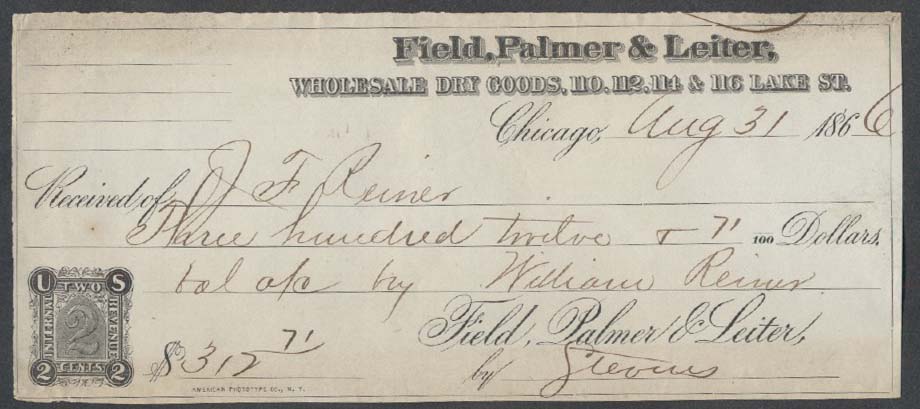 Field, Palmer & Leiter,
WHOLESALE DRY GOODS, 110. 112. 114 & 116 LAKE ST.
Chicago, Aug 31 1866
Received of J F Reiner
Three hundred twelve & 71/100 Dollars.
bal a/c by William Reiner
U S
INTERNAL TWO REVENUE
2
CENTS
2 2
$312 71
Field, Palmer & Leiter,
by Stevens
AMERICAN PHOTOTYPE CO., N. Y.